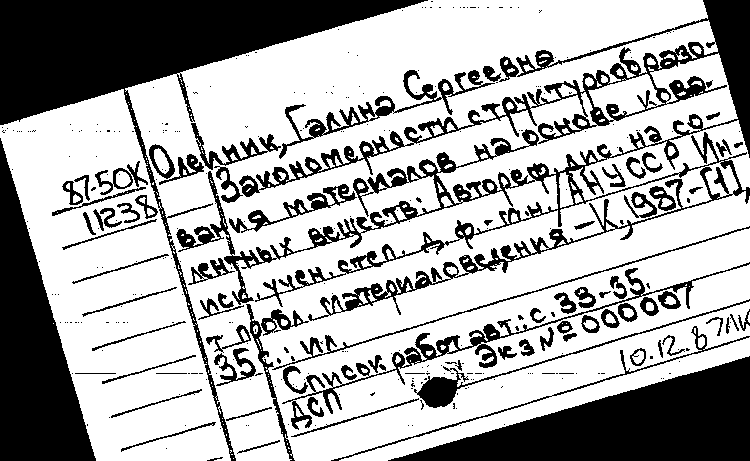 87-50K
11238
Олейник, Галина Сергеевна.
Закономерности структурообразо-
вания материалов на основе кова-
лентных веществ: Автореф. дис. на со-
иск. учен. степ. д. ф.-м.н. / АН УССР, Ин-
т пробл. материаловедения. - К., 1987. - [1],
35 с.: ил.
Список работ авт.: с. 33-35.
ДСП Экз № 000007
10.12.87ЛК